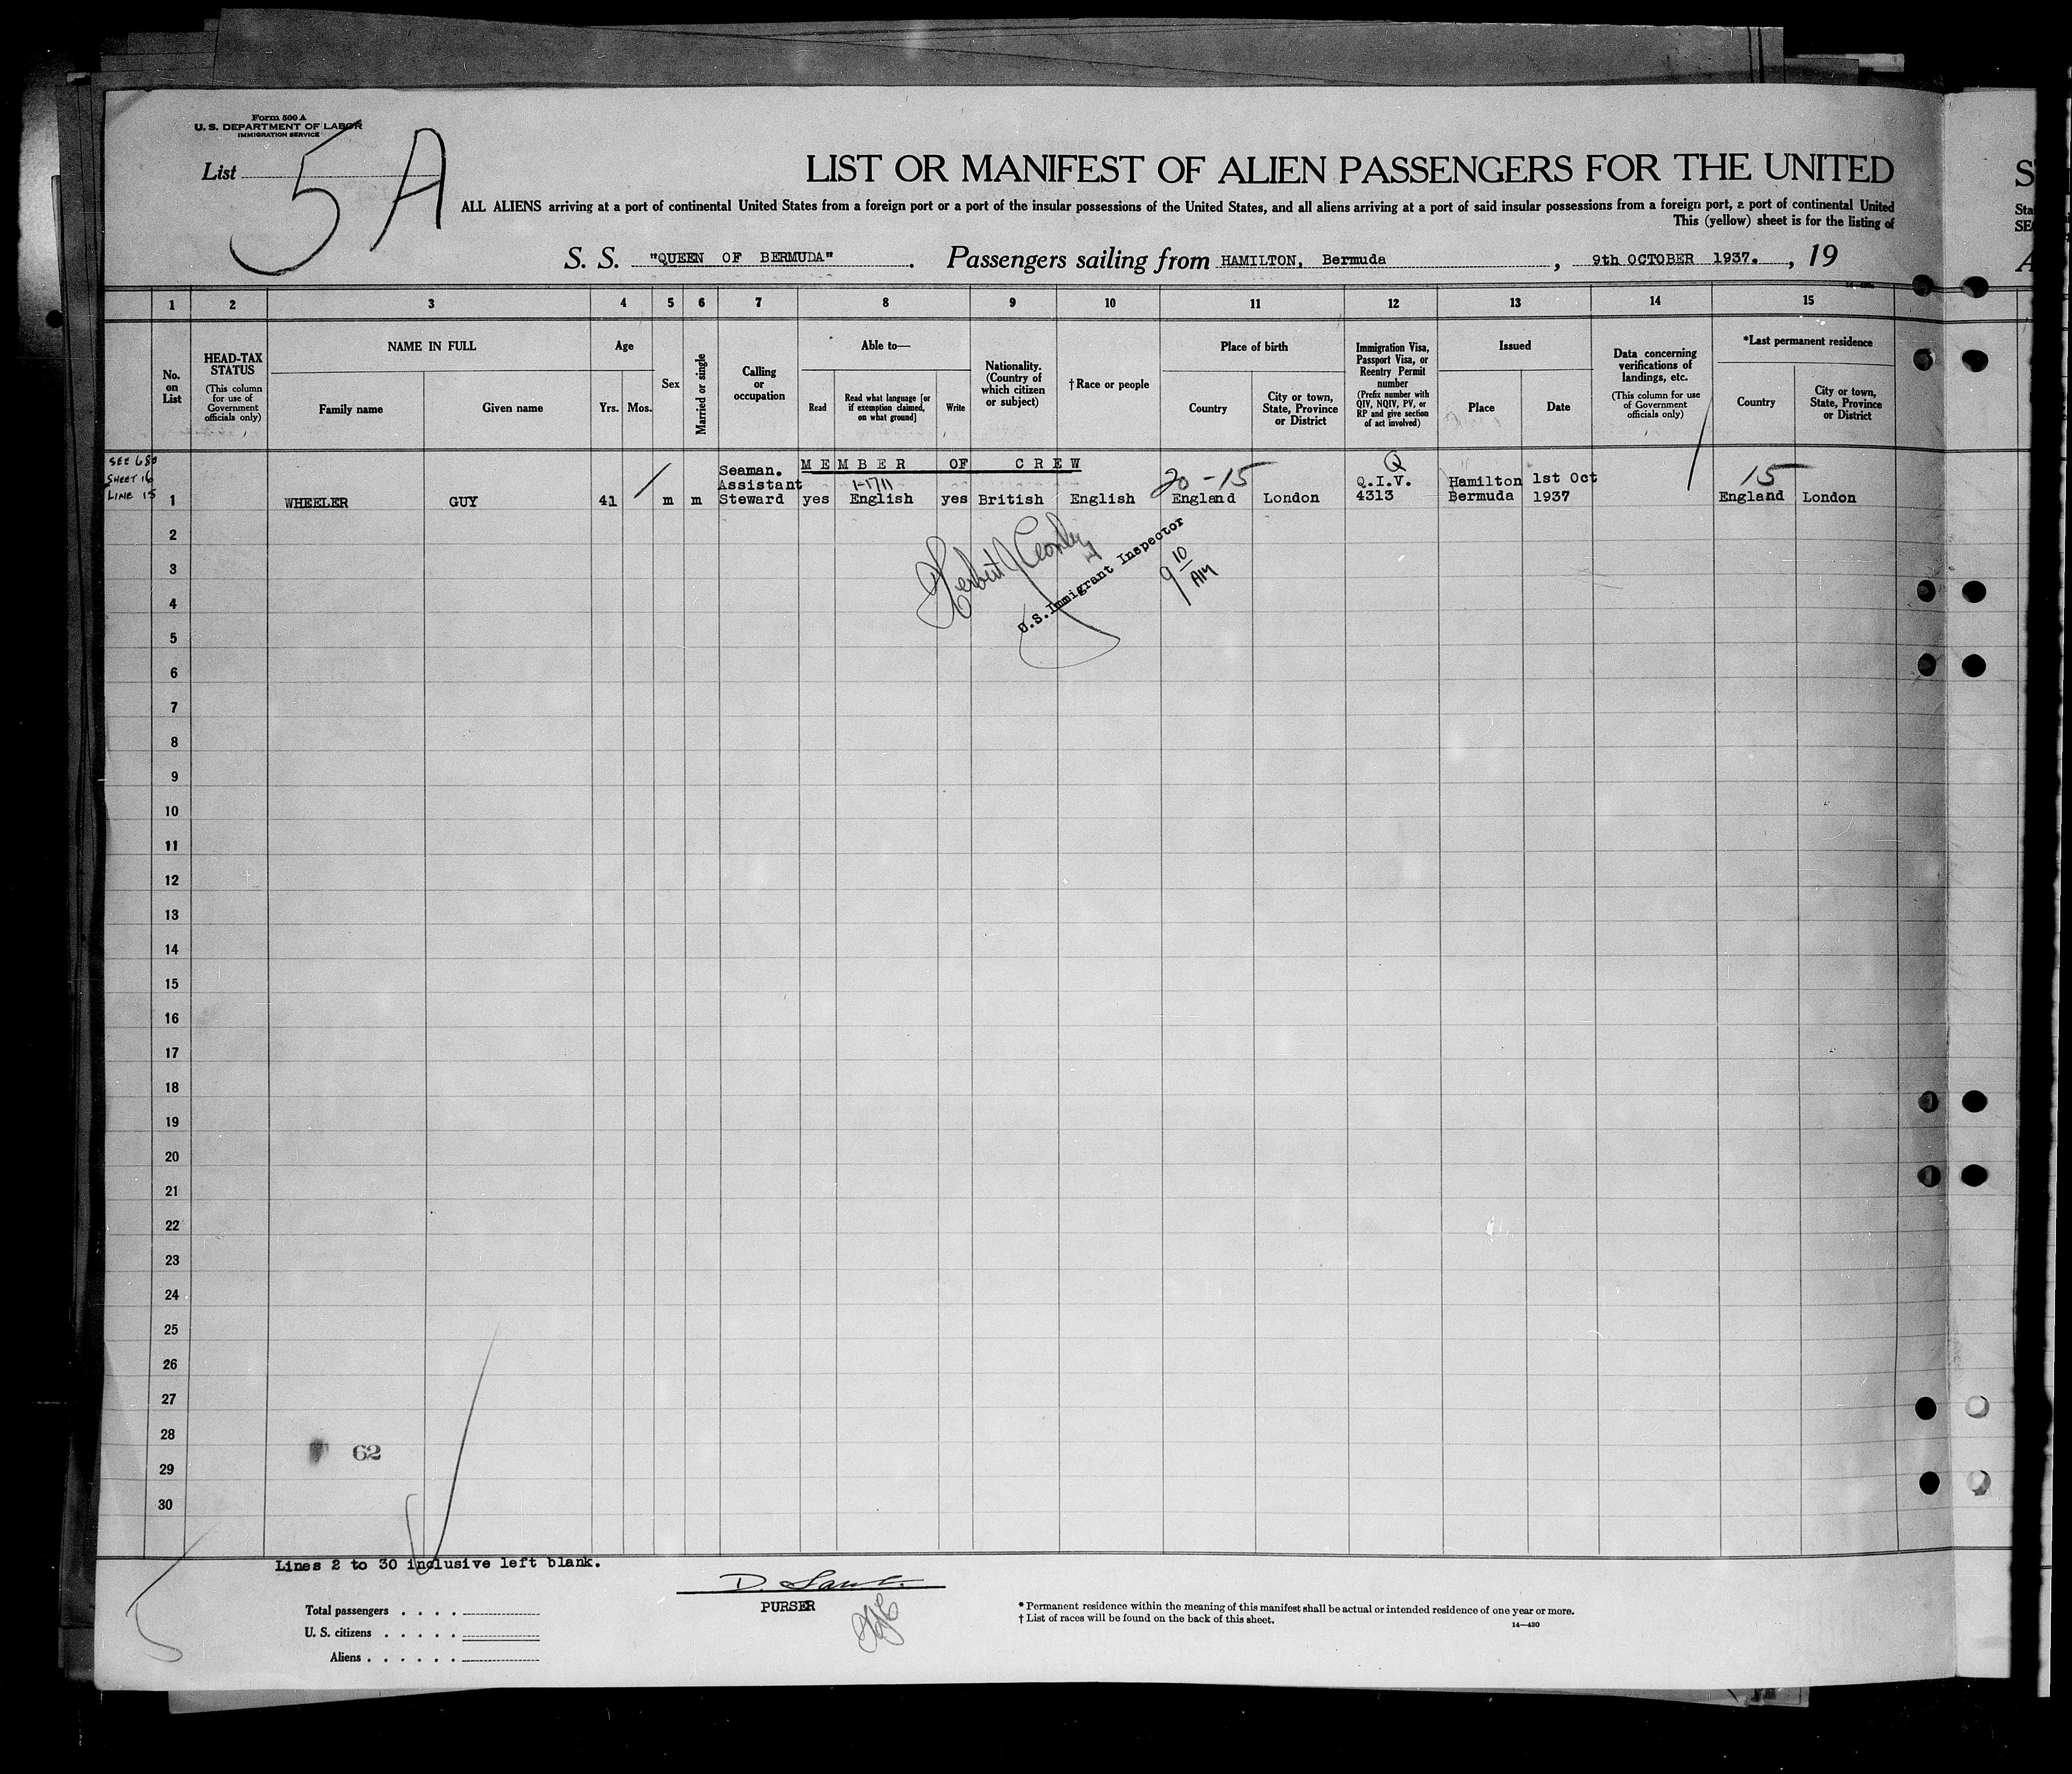 Form 500 A
U. S. DEPARTMENT OF LABOR
IMMIGRATION SERVICE
List 5A
LIST OR MANIFEST OF ALIEN PASSENGERS FOR THE UNITED
ALL ALIENS arriving at a port of continental United States from a foreign port or a port of the insular possessions of the United States, and all aliens arriving at a port of said insular possessions from a foreign port, a port of continental United
This (yellow) sheet is for the listing of
S. S. "QUEEN OF BERMUDA". Passengers sailing from HAMILTON, Bermuda, 9th OCTOBER 1937., 19
1 2 3 4 5 6 7 8 9 10 11 12 13 14 15
No. on List
HEAD-TAX STATUS
(This column for use of Government officials only)
NAME IN FULL
Family name
Given name
Age
Yrs. Mos.
Sex
Married or single
Calling or occupation
Able to—
Read
Read what language [or if exemption claimed, on what ground]
Write
Nationality. (Country of which citizen or subject)
†Race or people
Place of birth
Country
City or town, State, Province or District
Immigration Visa, Passport Visa, or Reentry Permit number
(Prefix number with QIV, NQIV, PV, or RP and give section of act involved)
Issued
Place
Date
Data concerning verifications of landings, etc.
(This column for use of Government officials only)
*Last permanent residence
Country
City or town, State, Province or District
SEE 680
SHEET 16
LINE 15
MEMBER OF CREW
Seaman.
Assistant
Q
20-15
15
Q.I.V.
Hamilton 1st Oct
1 WHEELER GUY 41 m m Steward yes English yes British English England London 4313 Bermuda 1937 England London
U.S. Immigrant Inspector
9 10 AM
2
3
4
5
6
7
8
9
10
11
12
13
14
15
16
17
18
19
20
21
22
23
24
25
26
27
28
29
30
62
Lines 2 to 30 inclusive left blank.
PURSER
Total passengers . . . .
U. S. citizens . . . . .
Aliens . . . . . .
* Permanent residence within the meaning of this manifest shall be actual or intended residence of one year or more.
† List of races will be found on the back of this sheet.
14—430